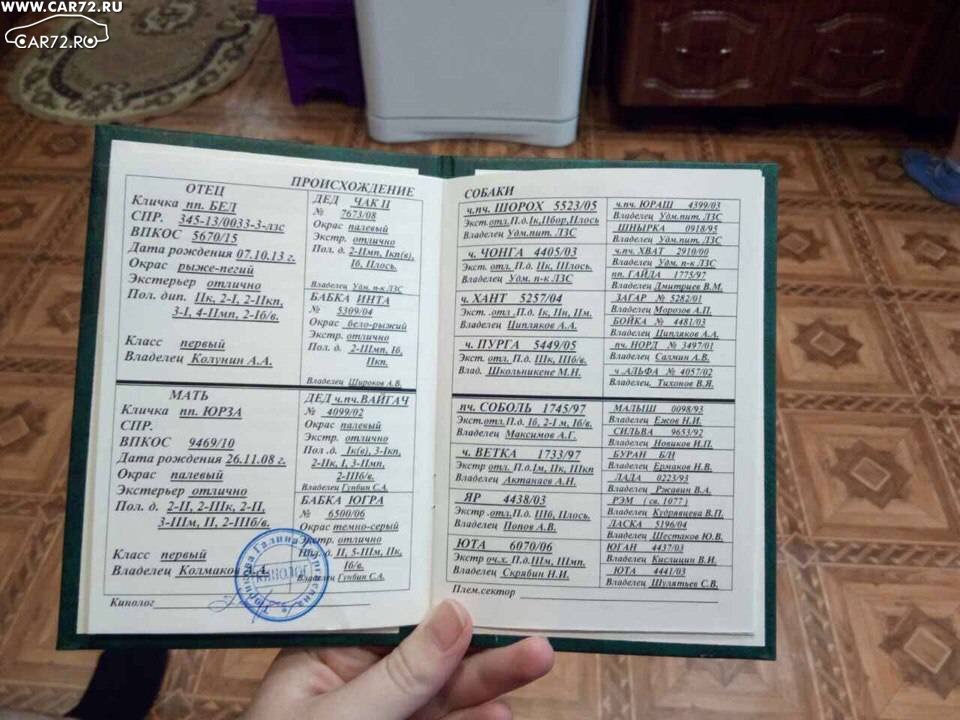 WWW.CAR72.RU
CAR72.RU
ПРОИСХОЖДЕНИЕ
ОТЕЦ
Кличка пп. БЕЛ
СПР. 345-13/0033-3-лзс
ВПКОС 5670/15
Дата рождения 07.10.13 г.
Окрас рыже-пегий
Экстерьер отлично
Пол. дип. IIк, 2-I, 2-IIкп,
3-I, 4-IIмп, 2-Iб/в.
Класс первый
Владелец Колунин А.А.
ДЕД ЧАК II
№ 7673/08
Окрас палевый
Экстр. отлично
Пол. д. 2-IIмп, Iкп(в),
Iб, Iлось.
Владелец Удм. п-к ЛЗС
БАБКА ИНТА
№ 5309/04
Окрас бело-рыжий
Экстр. отлично
Пол. д. 2-IIIмп, Iб,
IIкп.
Владелец Широков А.В.
МАТЬ
Кличка пп. ЮРЗА
СПР.
ВПКОС 9469/10
Дата рождения 26.11.08 г.
Окрас палевый
Экстерьер отлично
Пол. д. 2-II, 2-IIIк, 2-II,
3-IIIм, II, 2-IIIб/в.
Класс первый
Владелец Колмаков А.А.
Кинолог
КИНОЛОГ
ДЕД ч.пч. ВАЙГАЧ
№ 4099/02
Окрас палевый
Экстр. отлично
Пол .д. Iк(в), 3-Iкп,
2-IIк, I, 3-IIмп,
2-IIIб/в.
Владелец Гунбин С.А.
БАБКА ЮГРА
№ 6500/06
Окрас темно-серый
Экстр. отлично
д. II, 5-IIIм, IIк,
Iб/в.
Владелец Гунбин С.А.
СОБАКИ
ч.пч. ШОРОХ 5523/05
Экст.отл.П.д.Iк,IIбор,IIлось
Владелец Удм.пит. ЛЗС
ч. ЧОНГА 4405/03
Экст. отл. П.д. IIк, IIIлось.
Владелец Удм. п-к ЛЗС
ч. ХАНТ 5257/04
Экст. отл .П.д. Iк, IIп, IIм.
Владелец Ципляков А.А.
ч. ПУРГА 5449/05
Экст. отл. П.д. IIIк, IIIб/в.
Влад. Школьникене М.Н.
ч.пч. ЮРАШ 4399/03
Владелец Удм.пит. ЛЗС
ШНЫРКА 0918/95
Владелец Удм.пит. ЛЗС
ч.пч. ХВАТ 2910/00
Владелец Удм. п-к ЛЗС
пп. ГАЙДА 1775/97
Владелец Дмитриев В.М.
ЗАГАР № 5282/01
Владелец Морозов А.П.
БОЙКА № 4481/03
Владелец Ципляков А.А.
пч. НОРД № 3497/01
Владелец Салмин А.В.
ч .АЛЬФА № 4057/02
Владелец. Тихопов В.Я.
пч. СОБОЛЬ 1745/97
Экст.отл.П.д. Iб, 2-I м, Iб/в.
Владелец Максимов А.Г.
ч. ВЕТКА 1733/97
Экстр отл. П.д.Iм, IIк, IIIкп
Владелец Актанаев А.Н.
ЯР 4438/03
Экстр .отл.П.д. IIIб, IIлось.
Владелец Попов А.В.
ЮТА 6070/06
Экстр оч.х. П.д.IIIм, IIIмп.
Владелец Скрябин Н.И.
Плем.сектор
МАЛЫШ 0098/93
Владелец Ежов Н.И.
СИЛЬВА 9653/92
Владелец Новиков И.П.
БУРАН Б/Н
Владелец Ермаков Н.В.
ЛАДА 0223/93
Владелец Ржавин В.А.
РЭМ ( св. 1077 )
Владелец Кудрявцева В.П.
ЛАСКА 5196/04
Владелец Шестаков Ю.В.
ЮГАН 4437/03
Владелец Кислицин В.И.
ЮТА 4441/03
Владелец Шулятьев С.В.